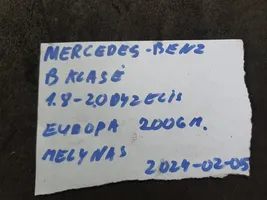 MERCEDES-BENZ
B KLASĖ
1.8-2.0 DYZELIS
EUROPA 2006M.
MELYNAS 2024-02-05